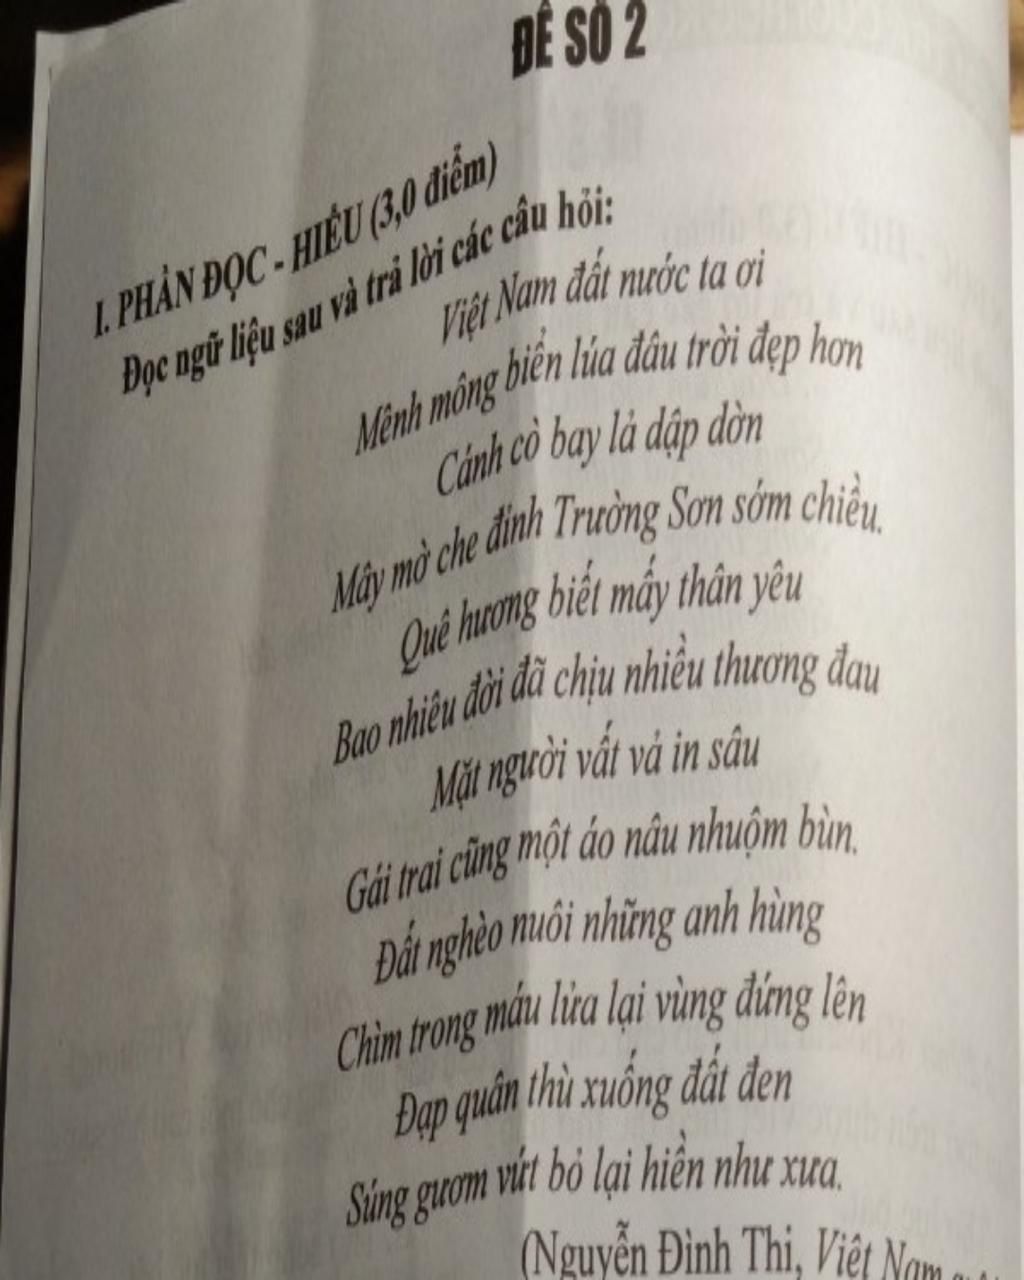 ĐỀ SỐ 2
I. PHẦN ĐỌC - HIỂU (3,0 điểm)
Đọc ngữ liệu sau và trả lời các câu hỏi:
Việt Nam đất nước ta ơi
Mênh mông biển lúa đâu trời đẹp hơn
Cánh cò bay lả dập dờn
Mây mờ che đỉnh Trường Sơn sớm chiều.
Quê hương biết mấy thân yêu
Bao nhiêu đời đã chịu nhiều thương đau
Mặt người vất vả in sâu
Gái trai cũng một áo nâu nhuộm bùn.
Đất nghèo nuôi những anh hùng
Chìm trong máu lửa lại vùng đứng lên
Đạp quân thù xuống đất đen
Súng gươm vứt bỏ lại hiền như xưa.
(Nguyễn Đình Thi, Việt Nam